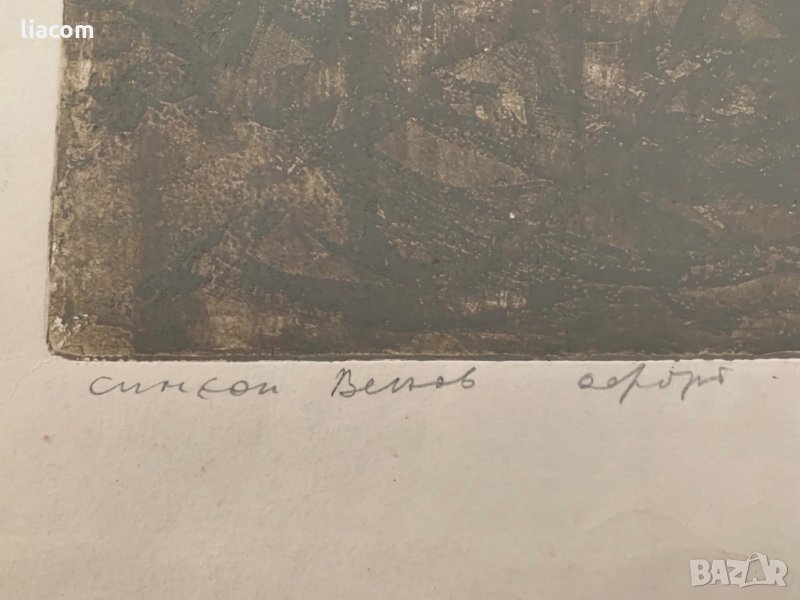 liacom
Симеон Венов офорт.
BAZAR